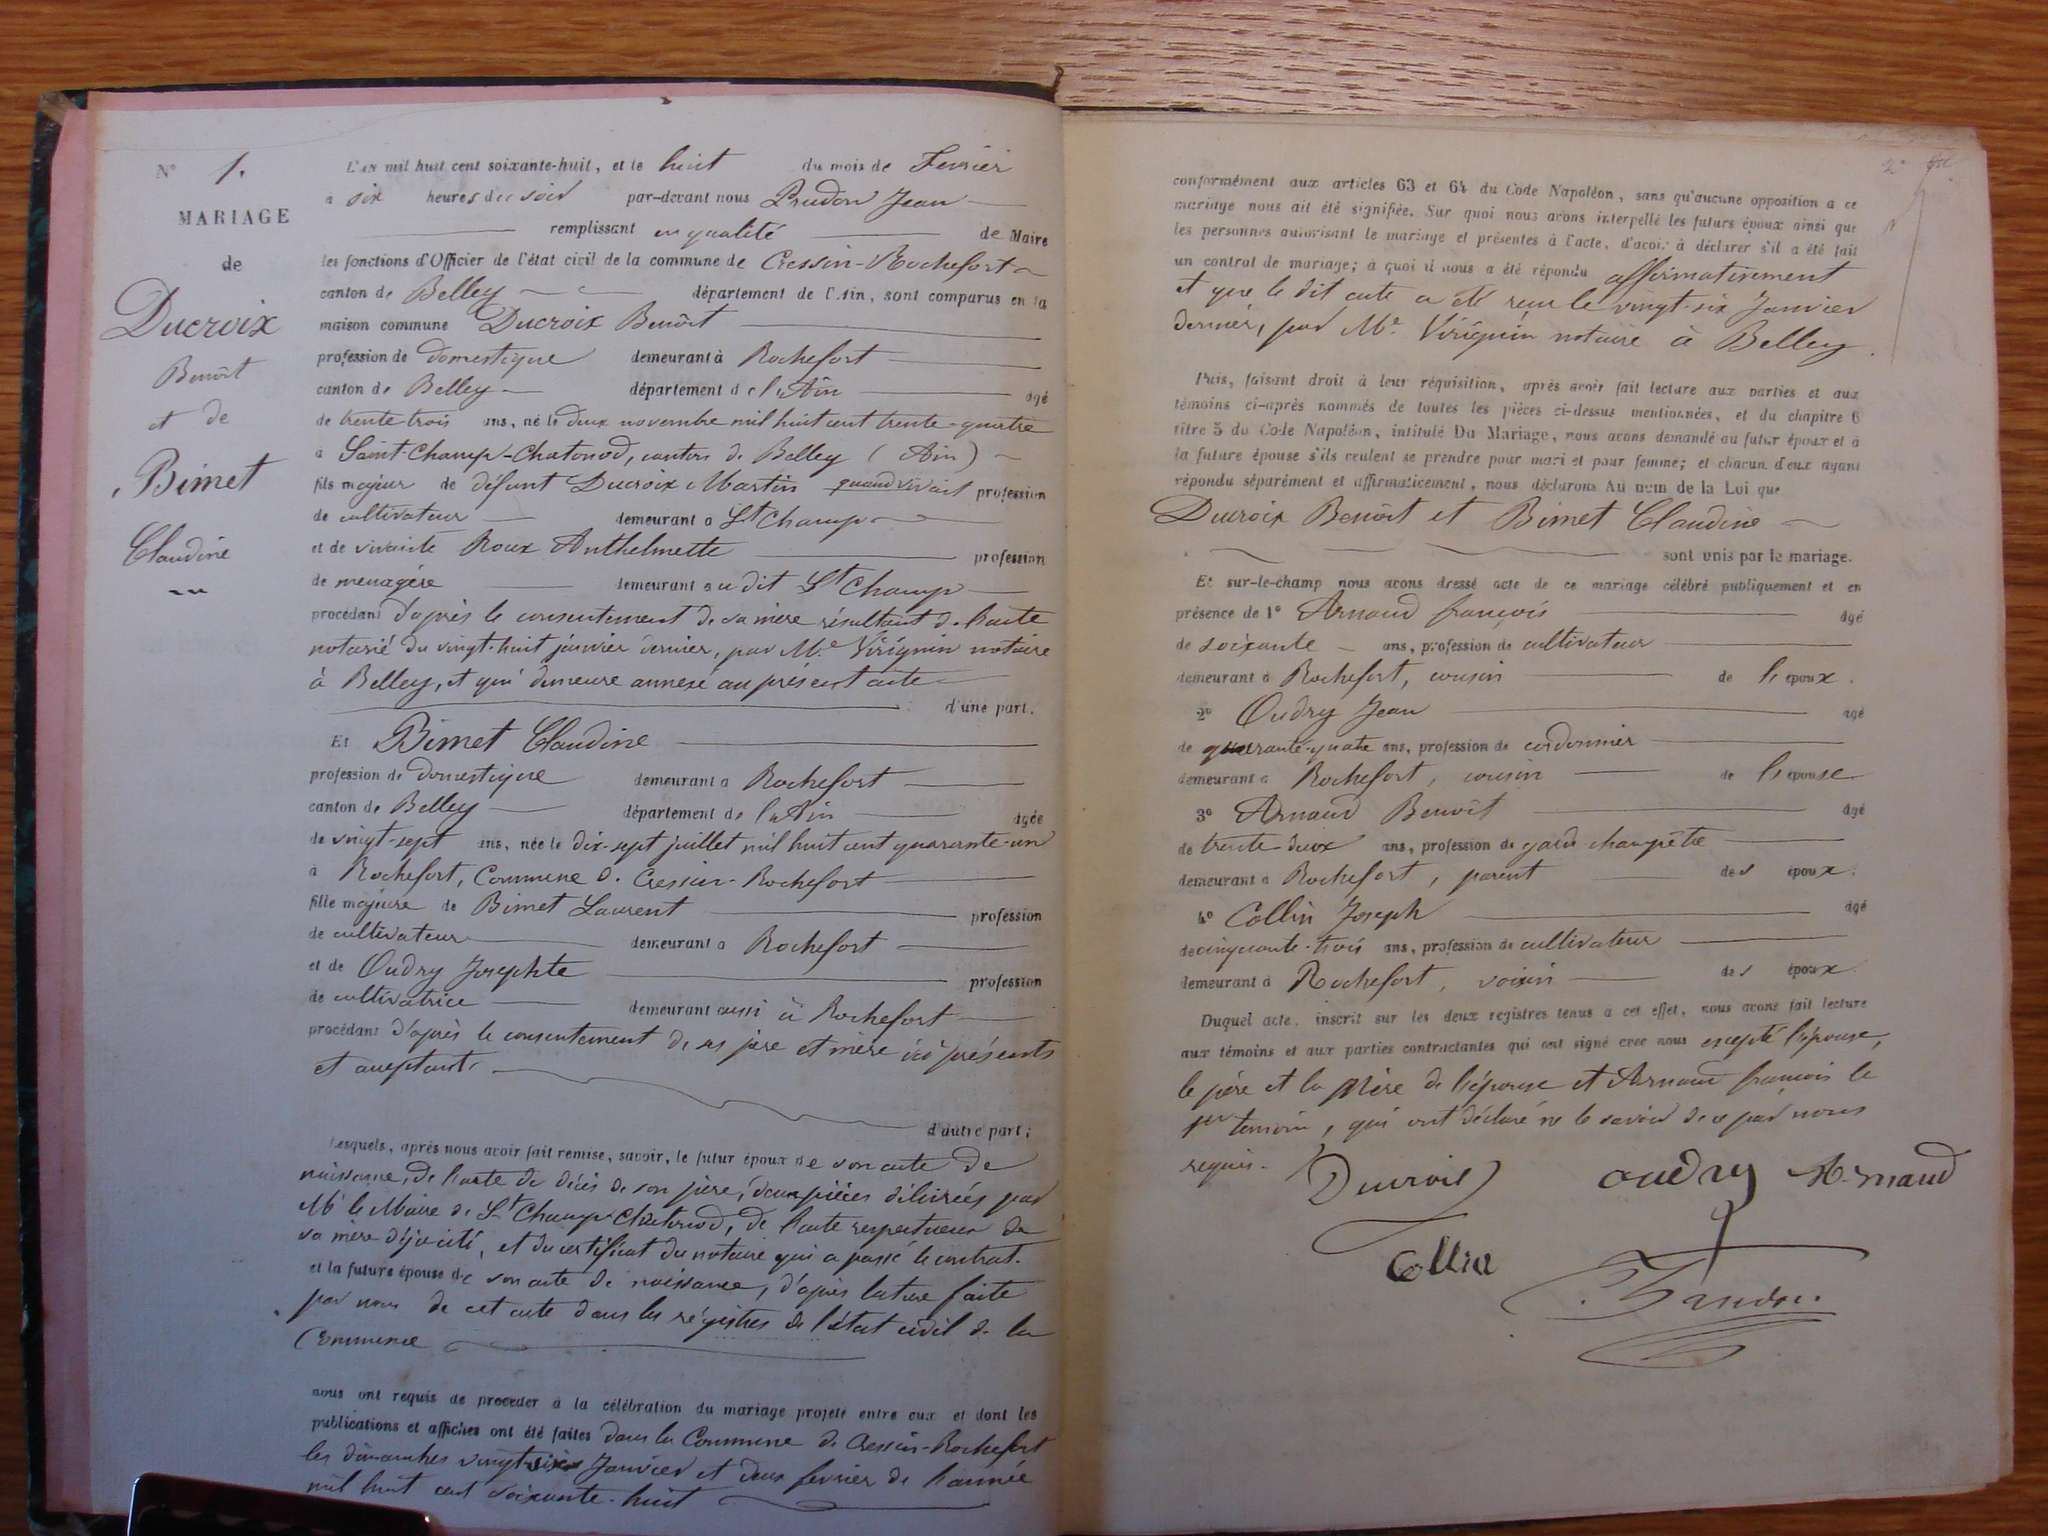 N° 1.
MARIAGE
de
Ducroix
Benoît
et de
Bimet
Claudine
L'an mil huit cent soixante-huit, et le huit du mois de Fevrier
à six heures du soir par-devant nous Prudon Jean
remplissant en qualité de Maire
les fonctions d'Officier de l'état civil de la commune de Cressin-Rochefort
canton de Belley département de l'Ain, sont comparus en la
maison commune Ducroix Benoît
profession de domestique demeurant à Rochefort
canton de Belley département de l'Ain âgé
de trente trois ans, né le deux novembre mil huit cent trente-quatre
à Saint-Champ-Chatonod, canton de Belley (Ain)
fils majeur de défunt Ducroix Martin quand vivait profession
de cultivateur demeurant à St Champ
et de vivante Roux Anthelmette profession
de menagère demeurant au dit St Champ
procédant d'après le consentement de sa mère résultant de l'acte
notarié du vingt-huit janvier dernier, par Me Virignin notaire
à Belley, et qui demeure annexé au présent acte
d'une part.
Et Bimet Claudine
profession de domestique demeurant à Rochefort
canton de Belley département de l'Ain âgée
de vingt-sept ans, née le dix-sept juillet mil huit cent quarante-un
à Rochefort, Commune de Cressin-Rochefort
fille majeure de Bimet Laurent profession
de cultivateur demeurant à Rochefort
et de Oudry Josephte profession
de cultivatrice demeurant aussi à Rochefort
procédant d'après le consentement de ses père et mère ici présents
et acceptant.
d'autre part;
Lesquels, après nous avoir fait remise, savoir, le futur époux de son acte de
naissance, de l'acte de décès de son père, deux pièces délivrées par
Mr le Maire de St Champ-Chatonod, de l'acte respectueux de
sa mère déjà cité, et du certificat du notaire qui a passé le contrat.
et la future épouse de son acte de naissance, d'après lecture faite
par nous de cet acte dans les régistres de l'état civil de la
Commune
nous ont requis de procéder à la célébration du mariage projeté entre eux et dont les
publications et affiches ont été faites dans la Commune de Cressin-Rochefort
les dimanches vingt-six Janvier et deux fevrier de l'année
mil huit cent soixante-huit
conformément aux articles 63 et 64 du Code Napoléon, sans qu'aucune opposition à ce
mariage nous ait été signifiée. Sur quoi nous avons interpellé les futurs époux ainsi que
les personnes autorisant le mariage et présentes à l'acte, d'avoir à déclarer s'il a été fait
un contrat de mariage; à quoi il nous a été répondu affirmativement
et que le dit acte a été reçu le vingt-six Janvier
dernier, par Me Virignin notaire à Belley.
Puis, faisant droit à leur réquisition, après avoir fait lecture aux parties et aux
témoins ci-après nommés de toutes les pièces ci-dessus mentionnées, et du chapitre 6
titre 5 du Code Napoléon, intitulé Du Mariage, nous avons demandé au futur époux et à
la future épouse s'ils veulent se prendre pour mari et pour femme; et chacun d'eux ayant
répondu séparément et affirmativement, nous déclarons Au nom de la Loi que
Ducroix Benoît et Bimet Claudine
sont unis par le mariage.
Et sur-le-champ nous avons dressé acte de ce mariage célébré publiquement et en
présence de 1° Arnaud françois âgé
de soixante ans, profession de cultivateur
demeurant à Rochefort, cousin de l'époux.
2° Oudry Jean âgé
de quarante-quatre ans, profession de cordonnier
demeurant à Rochefort, cousin de l'épouse
3° Arnaud Benoît âgé
de trente deux ans, profession de garde champêtre
demeurant à Rochefort, parent des époux.
4° Collin Joseph âgé
de cinquante-trois ans, profession de cultivateur
demeurant à Rochefort, voisin des époux.
Duquel acte, inscrit sur les deux registres tenus à cet effet, nous avons fait lecture
aux témoins et aux parties contractantes qui ont signé avec nous excepté l'épouse,
le père et la Mère de l'épouse et Arnaud francois le
1er temoin, qui ont déclaré ne le savoir de ce par nous
requis.
Ducroix oudry Arnaud
Collin
Prudon